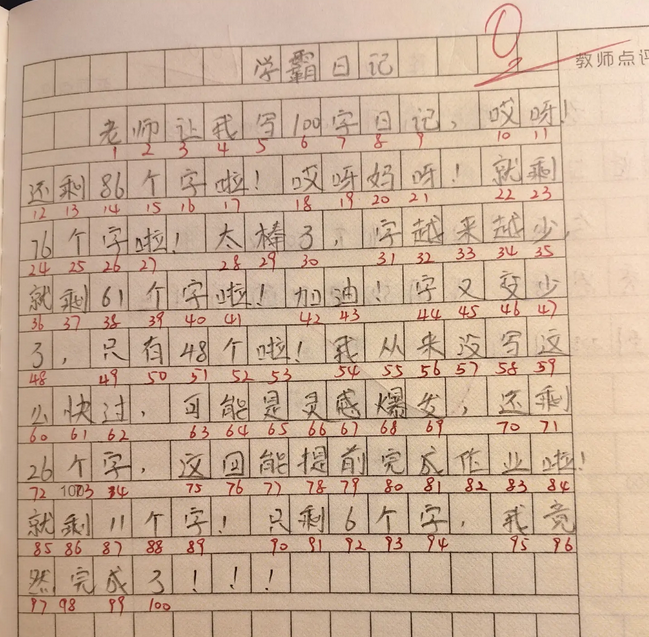 学霸日记
教师点评
老师让我写100字日记，哎呀！
1 2 3 4 5 6 7 8 9 10 11
还剩86个字啦！哎呀妈呀！就剩
12 13 14 15 16 17 18 19 20 21 22 23
76个字啦！太棒了，字越来越少，
24 25 26 27 28 29 30 31 32 33 34 35
就剩61个字啦！加油！字又变少
36 37 38 39 40 41 42 43 44 45 46 47
了，只有48个啦！我从来没写这
48 49 50 51 52 53 54 55 56 57 58 59
么快过，可能是灵感爆发，还剩
60 61 62 63 64 65 66 67 68 69 70 71
26个字，这回能提前完成作业啦！
72 73 74 75 76 77 78 79 80 81 82 83 84
就剩11个字！只剩6个字，我竟
85 86 87 88 89 90 91 92 93 94 95 96
然完成了！！！
97 98 99 100